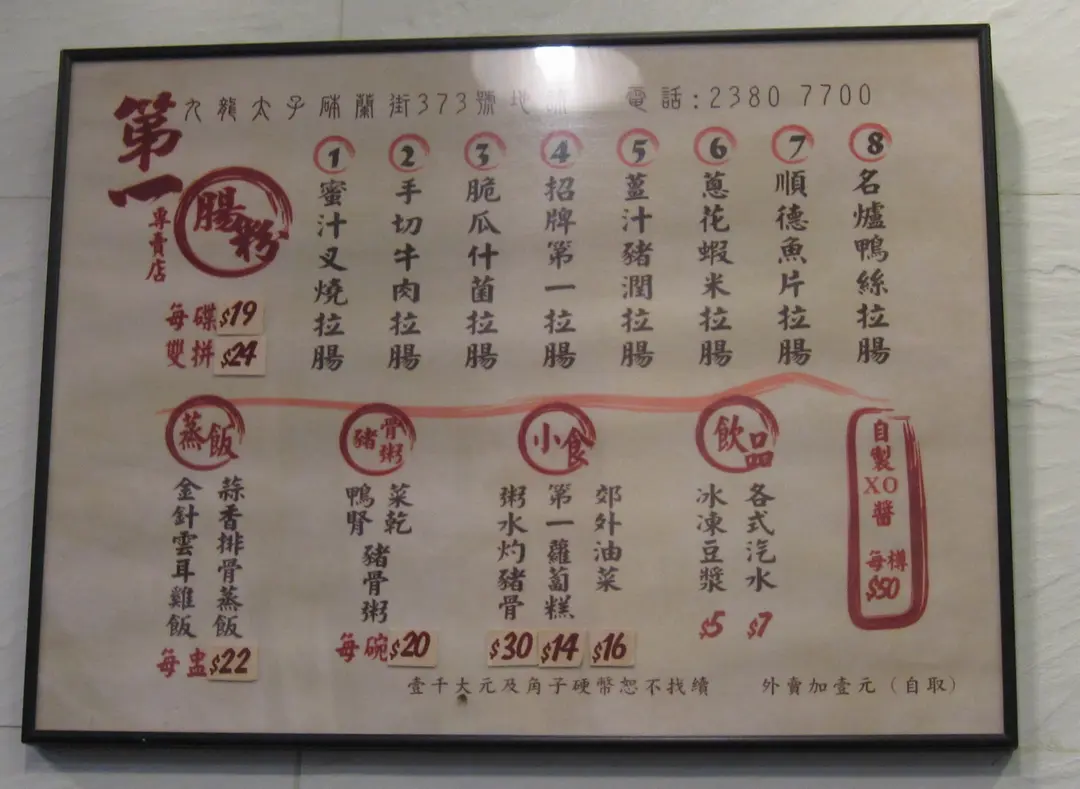 九龍太子砵蘭街373號地舖 電話:2380 7700
第一
腸粉
專賣店
每碟$19
雙拼$24
1 蜜汁叉燒拉腸
2 手切牛肉拉腸
3 脆瓜什菌拉腸
4 招牌第一拉腸
5 薑汁豬潤拉腸
6 蔥花蝦米拉腸
7 順德魚片拉腸
8 名爐鴨絲拉腸
蒸飯
蒜香排骨蒸飯
金針雲耳雞飯
每盅$22
豬骨粥
菜乾
鴨腎
豬骨粥
每碗$20
小食
郊外油菜
$16
第一蘿蔔糕
$14
粥水灼豬骨
$30
飲品
各式汽水
$7
冰凍豆漿
$5
自製XO醬
每樽
$50
壹千大元及角子硬幣恕不找續
外賣加壹元（自取）